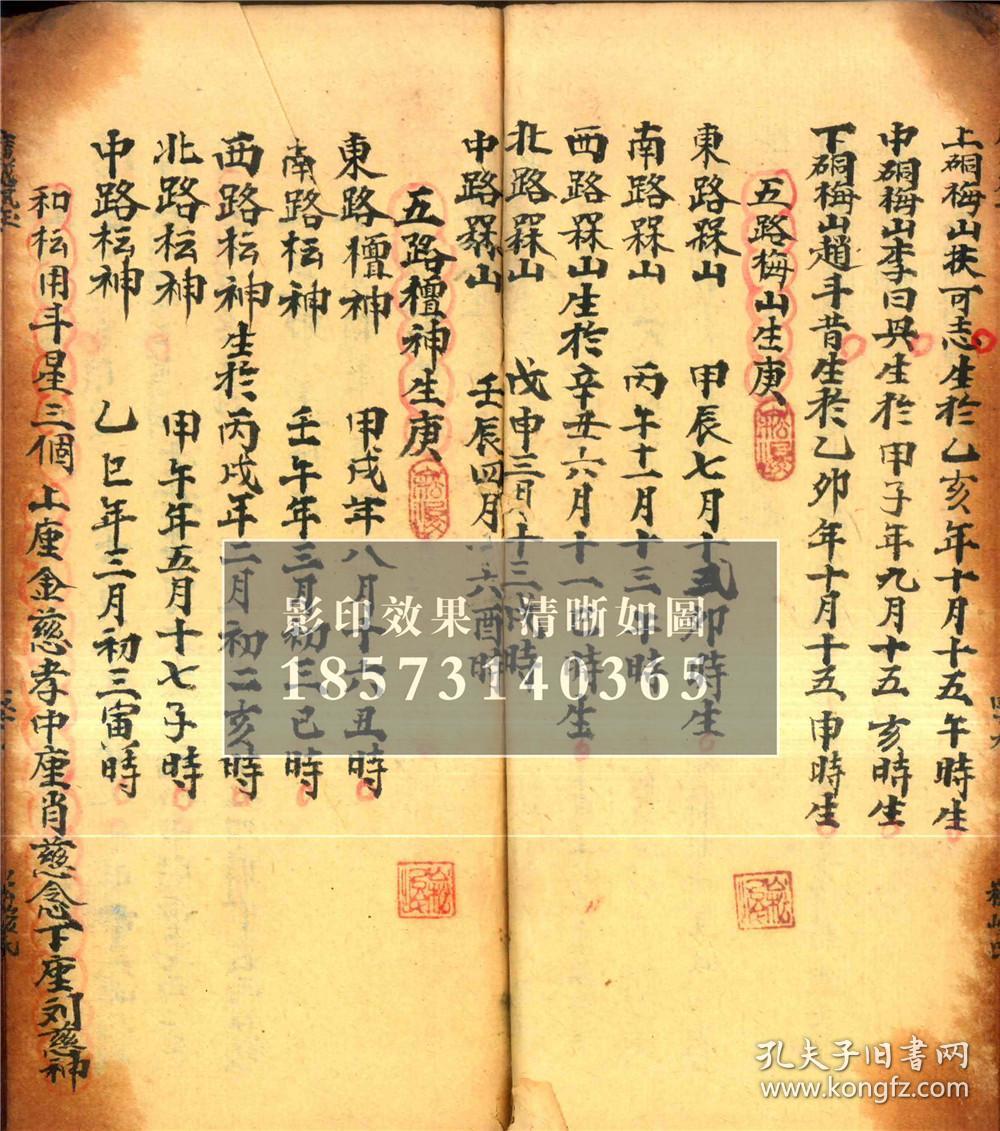 上硐梅山扶可志生於乙亥年十月十五午時生
中硐梅山李曰㒷生於甲子年九月十五亥時生
下硐梅山趙斗昔生於乙卯年十月十五申時生
五路梅山生庚
東路槑山 甲辰七月十卯時生
南路槑山 丙午十一月十三年時
西路槑山生於辛丑六月十一時生
北路槑山 戊申三月十三時
中路槑山 壬辰四月六酉時
五路檀神生庚
東路檀神 甲戌年八月十六丑時
南路枟神 壬午年三月初三巳時
西路枟神生於丙戌年二月初二亥時
北路枟神 甲午年五月十七子時
中路枟神 乙巳年二月初三寅時
和枟用斗星三個上座金慈孝中座肖慈念下座刘慈神
影印效果 清晰如圖
18573140365
孔夫子旧书网
www.kongfz.com